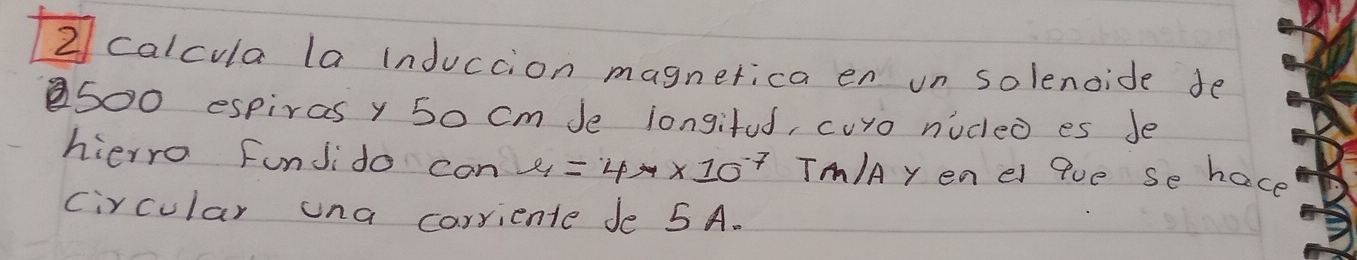 2 Calcula la induccion magnetica en un solenoide de
2500 espiras y 50 cm de longitud, cuyo núcleo es de
hierro Fundido con μ = 4π x 10⁻⁷ Tm/A y en el que se hace
circular una corriente de 5 A.